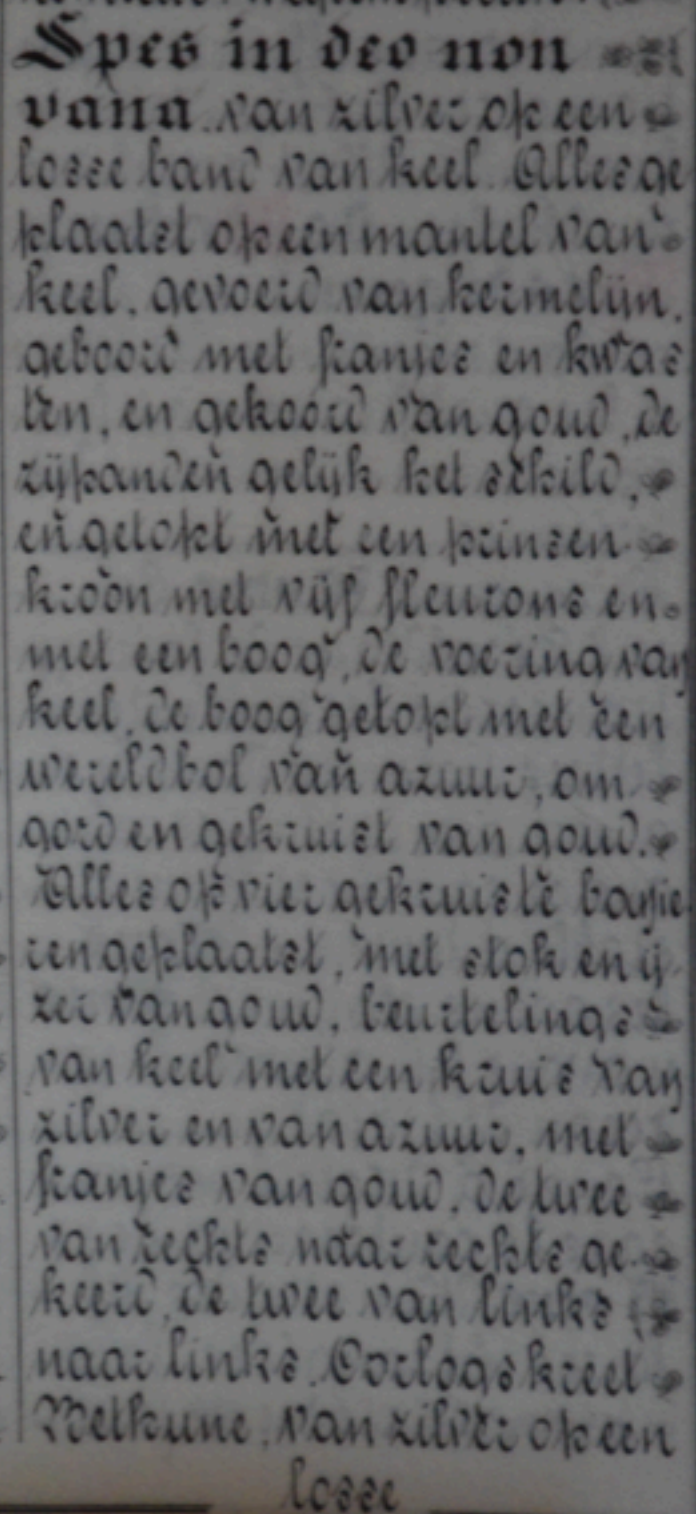 Spes in deo non
vana. van zilver op een
losse band van keel. Alles ge
plaatst op een mantel van
keel, gevoerd van hermelijn,
geboord met franjes en kwas
ten, en gekoord van goud, de
zijpanden gelijk het schild,
en getopt met een prinsen
kroon met vijf fleurons en
met een boog, de voering van
keel, de boog getopt met een
wereldbol van azuur, om
gord en gekruist van goud.
Alles op vier gekruiste banie
ren geplaatst, met stok en ij
zer van goud, beurtelings
van keel met een kruis van
zilver en van azuur, met
franjes van goud, de twee
van rechts naar rechts ge
keerd, de twee van links
naar links. Oorlogskreet
Methune, van zilver op een
losse